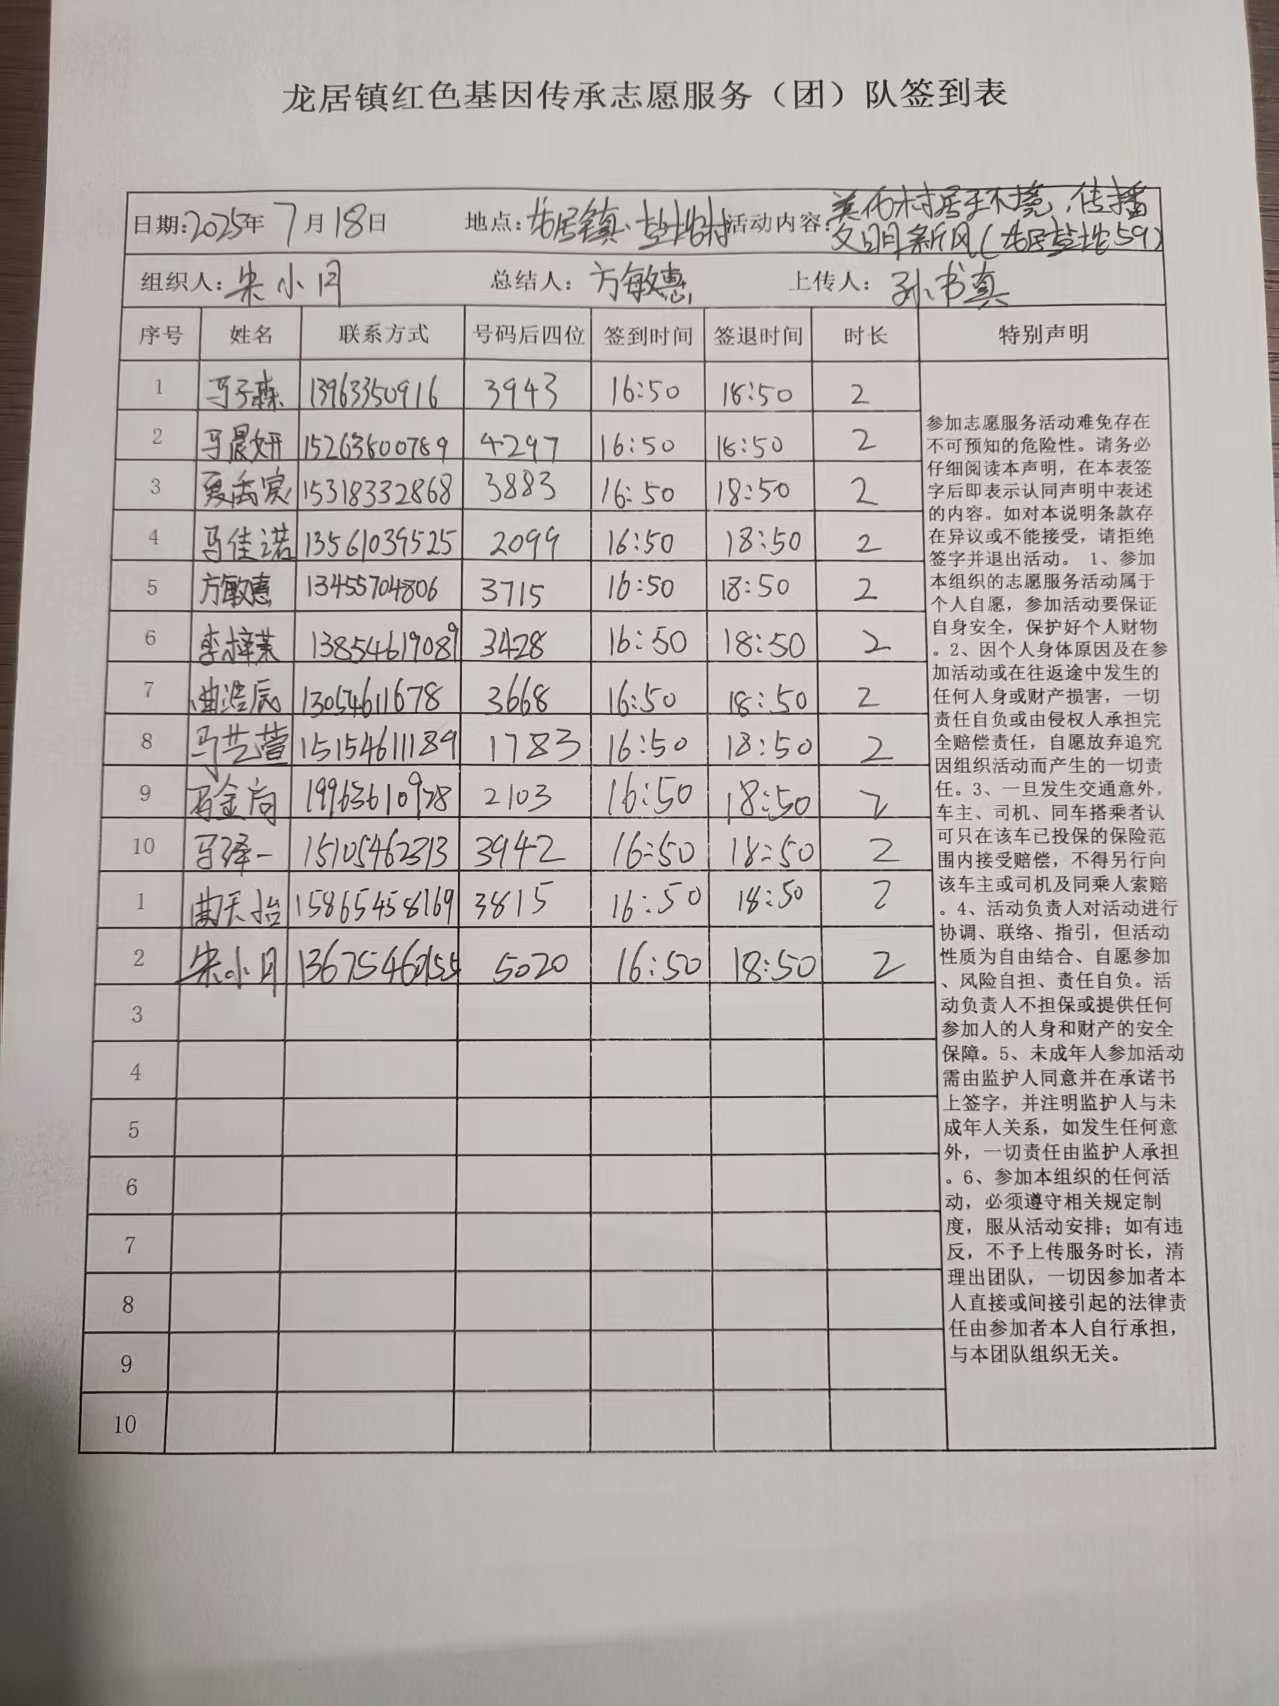 龙居镇红色基因传承志愿服务（团）队签到表
日期:2025年7月18日 地点:龙居镇·盐坨村 活动内容:美化村居环境,传播
文明新风(龙居盐坨59)
组织人:宋小月 总结人:方敏惠 上传人:孙书真
序号 姓名 联系方式 号码后四位 签到时间 签退时间 时长 特别声明
1 马子森 13963350916 3943 16:50 18:50 2
2 马晨妍 15263800789 4297 16:50 18:50 2
3 夏禹宸 15318332868 3883 16:50 18:50 2
4 马佳诺 13561039525 2099 16:50 18:50 2
5 方敏惠 13455704806 3715 16:50 18:50 2
6 李梓茉 13854619089 3428 16:50 18:50 2
7 曲浩辰 13054611678 3668 16:50 18:50 2
8 马艺萱 15154611189 1783 16:50 18:50 2
9 马金向 2103 16:50 18:50 2
10 马泽一 15105462313 3942 16:50 18:50 2
1 曲天怡 15865458169 3815 16:50 18:50 2
2 宋小月 13675460155 5020 16:50 18:50 2
3
4
5
6
7
8
9
10
参加志愿服务活动难免存在
不可预知的危险性。请务必
仔细阅读本声明，在本表签
字后即表示认同声明中表述
的内容。如对本说明条款存
在异议或不能接受，请拒绝
签字并退出活动。 1、参加
本组织的志愿服务活动属于
个人自愿，参加活动要保证
自身安全，保护好个人财物
。2、因个人身体原因及在参
加活动或在往返途中发生的
任何人身或财产损害，一切
责任自负或由侵权人承担完
全赔偿责任，自愿放弃追究
因组织活动而产生的一切责
任。3、一旦发生交通意外，
车主、司机、同车搭乘者认
可只在该车已投保的保险范
围内接受赔偿，不得另行向
该车主或司机及同乘人索赔
。4、活动负责人对活动进行
协调、联络、指引，但活动
性质为自由结合、自愿参加
、风险自担、责任自负。活
动负责人不担保或提供任何
参加人的人身和财产的安全
保障。5、未成年人参加活动
需由监护人同意并在承诺书
上签字，并注明监护人与未
成年人关系，如发生任何意
外，一切责任由监护人承担
。6、参加本组织的任何活
动，必须遵守相关规定制
度，服从活动安排；如有违
反，不予上传服务时长，清
理出团队，一切因参加者本
人直接或间接引起的法律责
任由参加者本人自行承担，
与本团队组织无关。